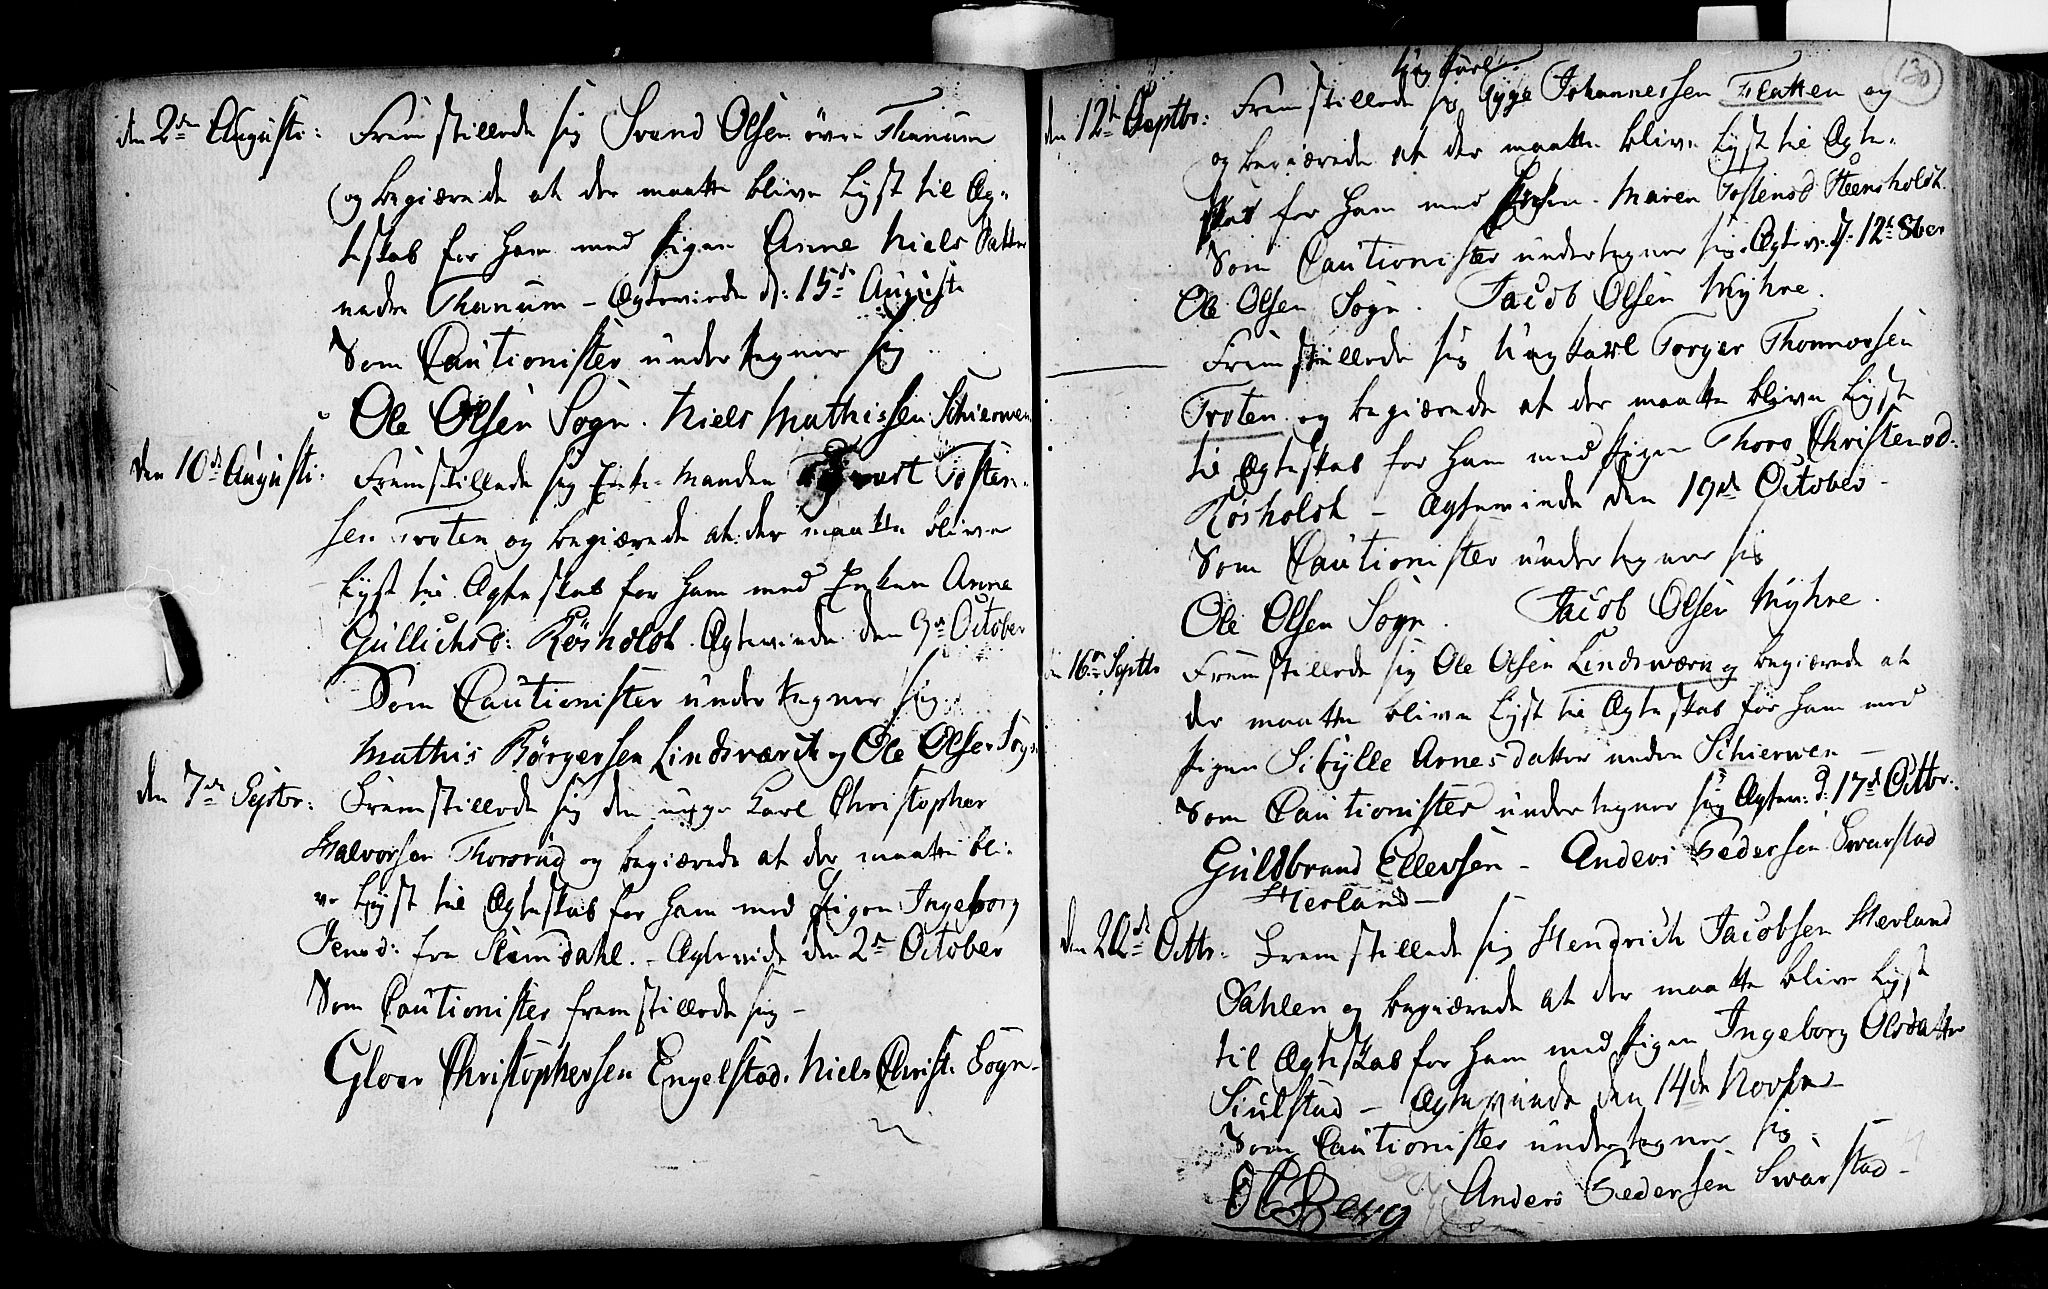 den 2den Augusti: Fremstillede sig Svend Olsen övre Thanum
og begiærede at der maatte blive Lyst til Æg-
teskab for ham med Pigen Anne Niels Datter
nedre Thanum – Ægteviede d: 15de Augusti
Som Cautionister undertegner sig
Ole Olsen Sogn. Niels Mathissen Schierwen
den 10de Augusti: Fremstillede sig Enke-Manden Torsten-
sen Troten og begiærede at der maatte blive
Lyst til Ægteskab for ham med Enken Anne
Gullichsd: Rösholdt Ægteviede den 9de October
Som Cautionister undertegner sig
Mathis Börgersen Lindsværch og Ole Olsen Sogn
den 7de Septbr: Fremstillede sig den unge Karl Christopher
Halvorsen Thorsrud og begiærede at der maatte bli-
ve Lyst til Ægteskab for ham med Pigen Ingeborg
Jensd: fra Slemdahl. – Ægteviede den 2de October
Som Cautionister fremstillede sig –
Gloer Christophersen Engelstad. Niels Christ: Sogn –
130
Ung Karl
den 12te Septbr: Fremstillede sig Johannessen Flatten og
og begiærede at der maatte blive Lyst til Ægte-
skab for ham med Maren Tostensd Steensholdt.
Som Cautionister undertegner sig. Ægtev. d. 12te 8ber
Ole Olsen Sogn. Jacob Olsen Myhre.
Fremstillede sig Ungkarl Torger Thommessen
Troten og begiærede at der maatte blive Lyst
til Ægteskab for ham med Pigen Thore Christensd:
Rösholdt – Ægteviede den 19de October –
Som Cautionister undertegner sig
Ole Olsen Sogn. Jacob Olsen Myhre.
16de Septbr Fremstillede sig Ole Olsen Lindsværn og begiærede at
der maatte blive Lyst til Ægteskab for ham med
Pigen Sibylle Arnesdatter nedre Schierwen –
Som Cautionister undertegner sig Ægtev: d: 17de Octbr:
Guldbrand Ellevsen – Anders Pedersen Svarstad
Herland –
den 22de Octbr: Fremstillede sig Hendrich Jacobsen Herland
Dahlen og begiærede at der maatte blive Lyst
til Ægteskab for ham med Pigen Ingeborg Olsdatter
Siulstad – Ægteviede den 14de Novbr –
Som Cautionister undertegner sig
Ol Berg Anders Pedersen Svarstad –